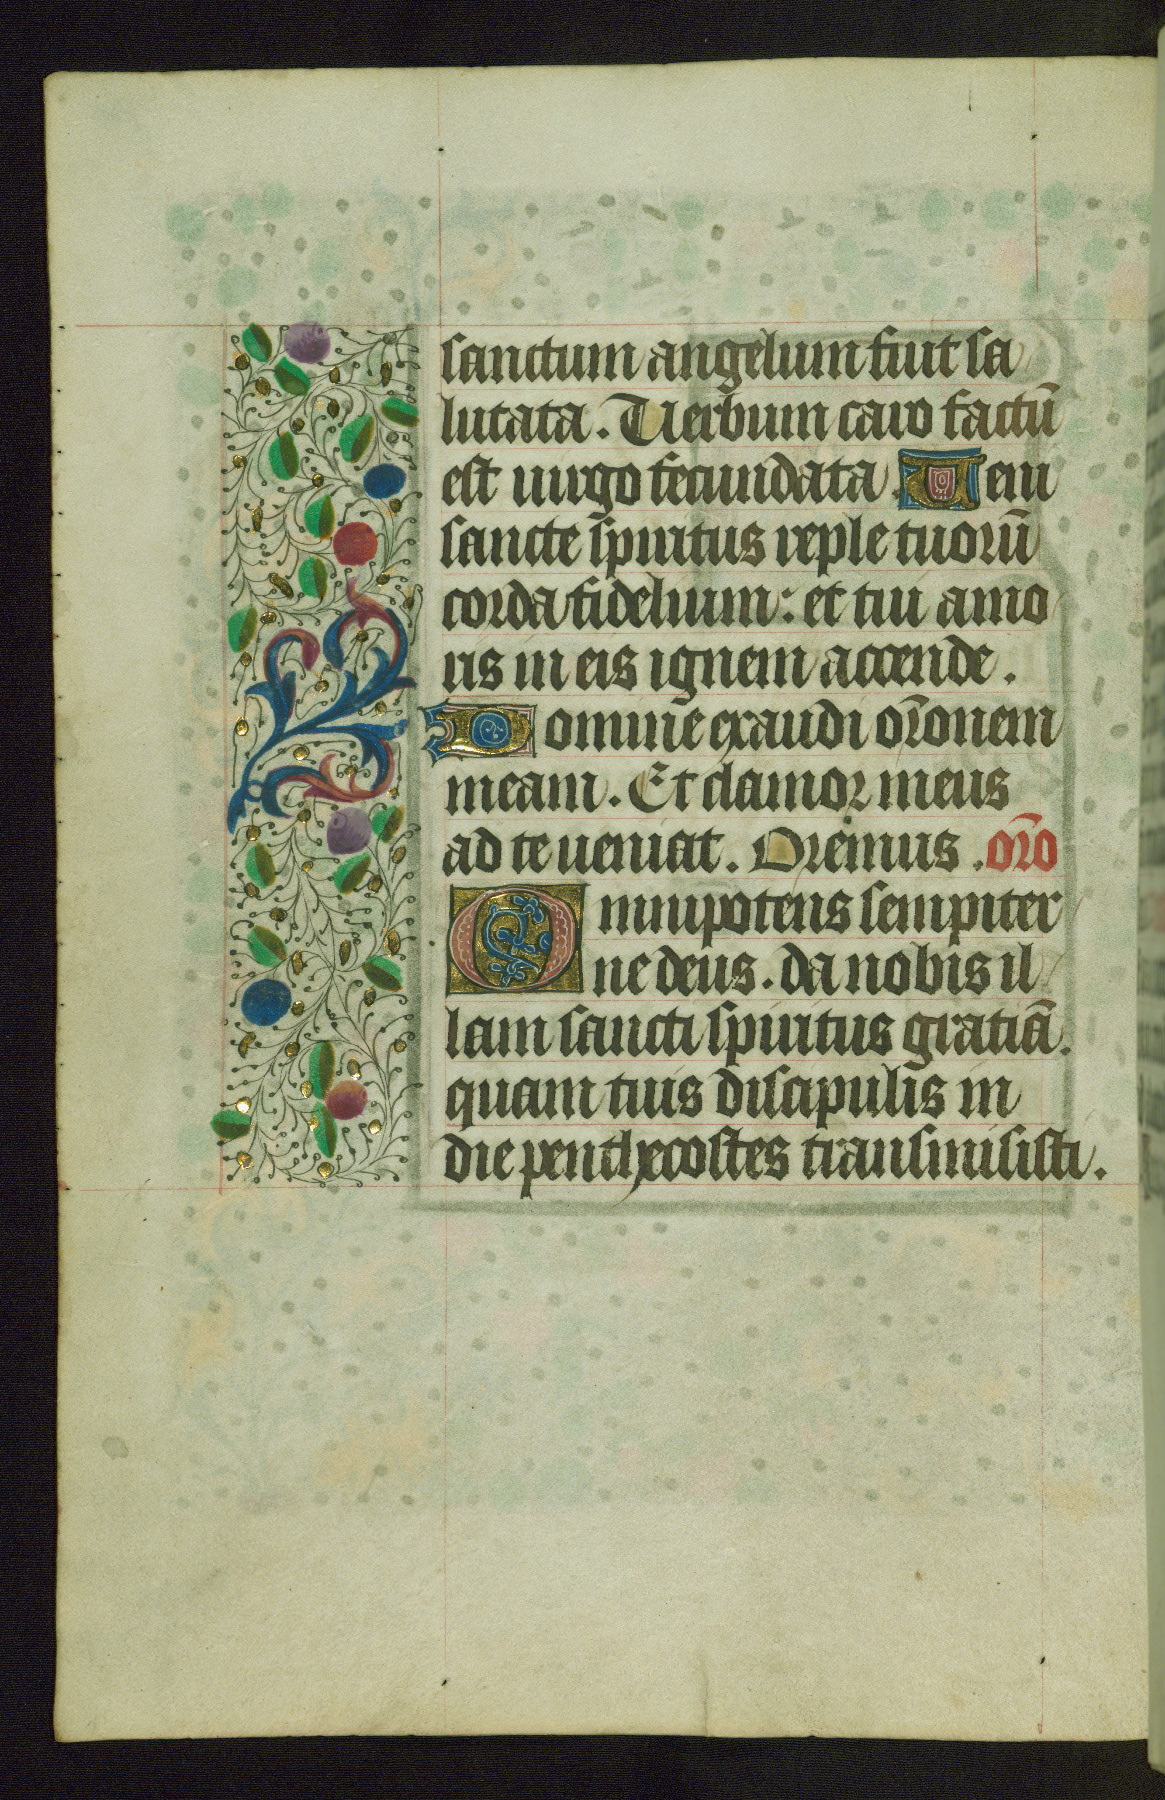 sanctum angelum fuit sa
lutata. Uerbum caro factū
est uirgo fecundata. Ueni
sancte spiritus reple tuorū
corda fidelium: et tui amo
ris in eis ignem accende.
Domine exaudi or̄onem
meam. Et clamor meus
ad te ueniat. Oremus. or̄o
Omnipotens sempiter
ne deus. da nobis il
lam sancti spiritus gratiā.
quam tuis discipulis in
die penthecostes transmisisti.